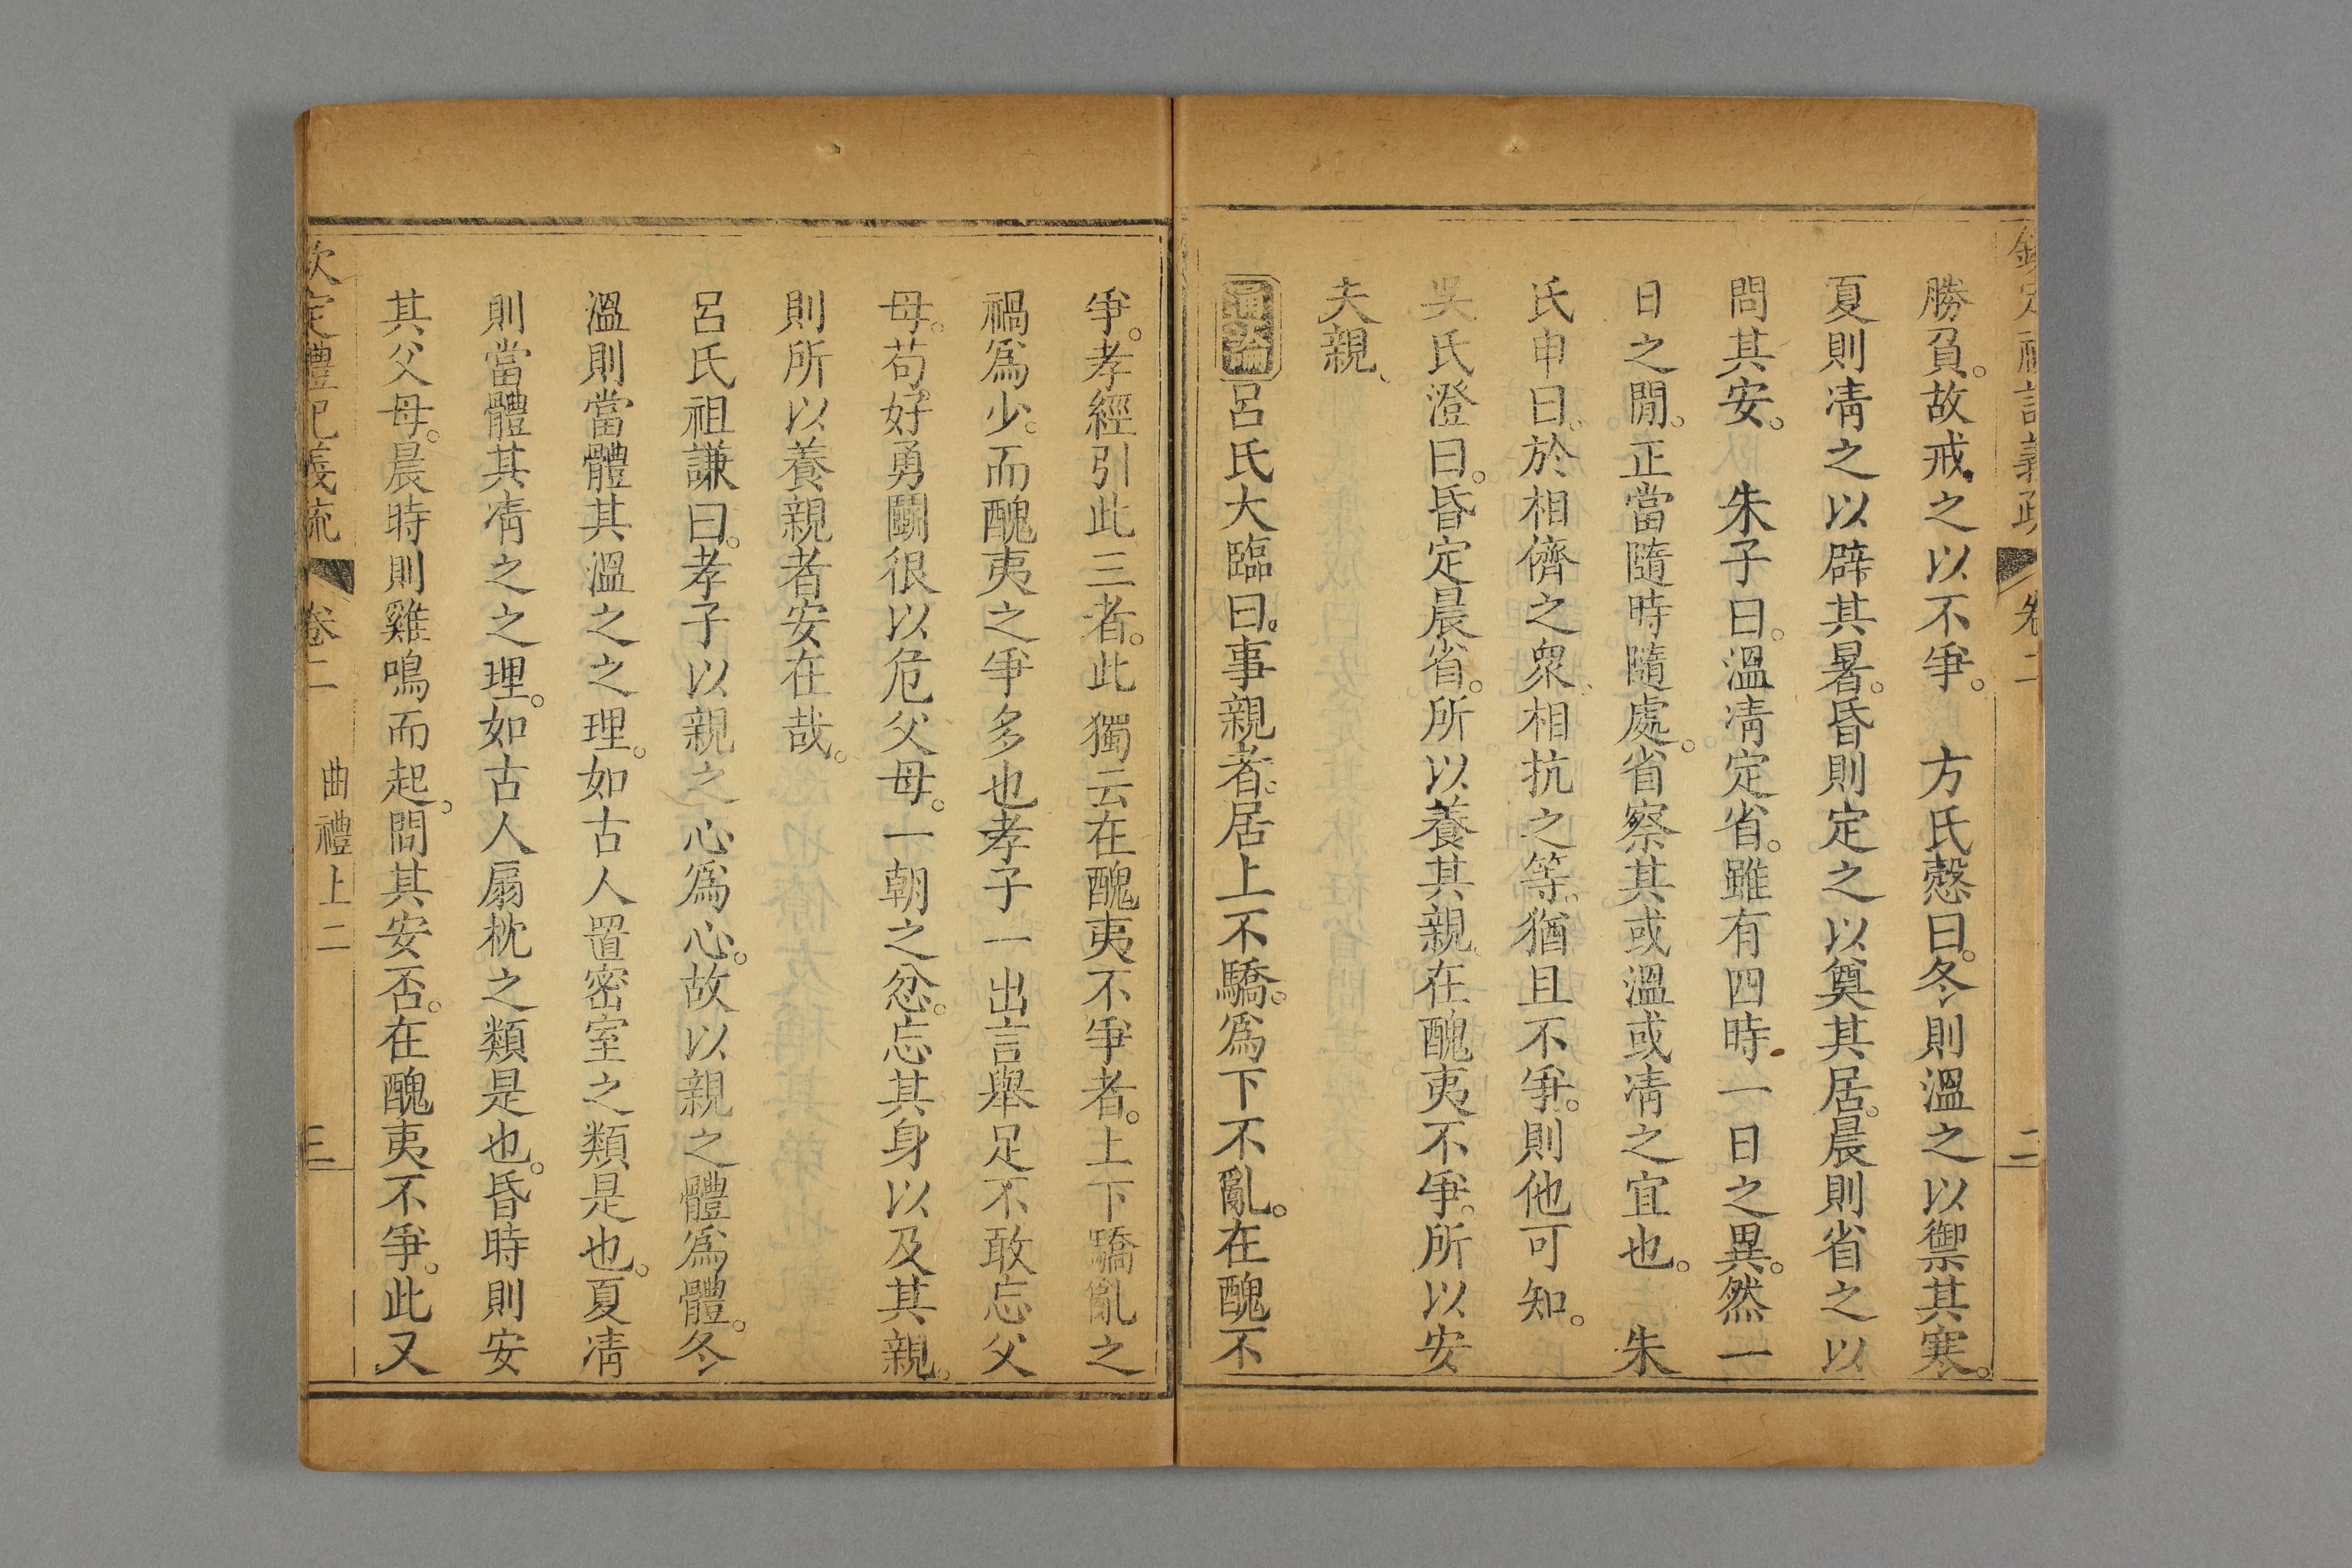 勝負。故戒之以不爭。　方氏慤曰。冬則溫之以禦其寒。
夏則凊之以辟其暑。昏則定之以奠其居。晨則省之以
問其安。　朱子曰。溫凊定省。雖有四時一日之異。然一
日之閒。正當隨時隨處。省察其或溫或凊之宜也。　朱
氏申曰。於相儕之衆。相抗之等。猶且不爭。則他可知。
吳氏澄曰。昏定晨省。所以養其親。在醜夷不爭。所以安
夫親、
通論呂氏大臨曰。事親者。居上不驕。爲下不亂。在醜不
爭。孝經引此三者。此獨云在醜夷不爭者。上下驕亂之
禍爲少。而醜夷之爭多也孝子一出言舉足不敢忘父
母。苟好勇鬭很以危父母。一朝之忿。忘其身以及其親。
則所以養親者安在哉。
呂氏祖謙曰。孝子以親之心爲心。故以親之體爲體。冬
溫則當體其溫之之理。如古人置密室之類是也。夏凊
則當體其凊之之理。如古人扇枕之類是也。昏時則安
其父母。晨時則雞鳴而起。問其安否。在醜夷不爭。此又
欽定禮記義疏　卷二　曲禮上二　三